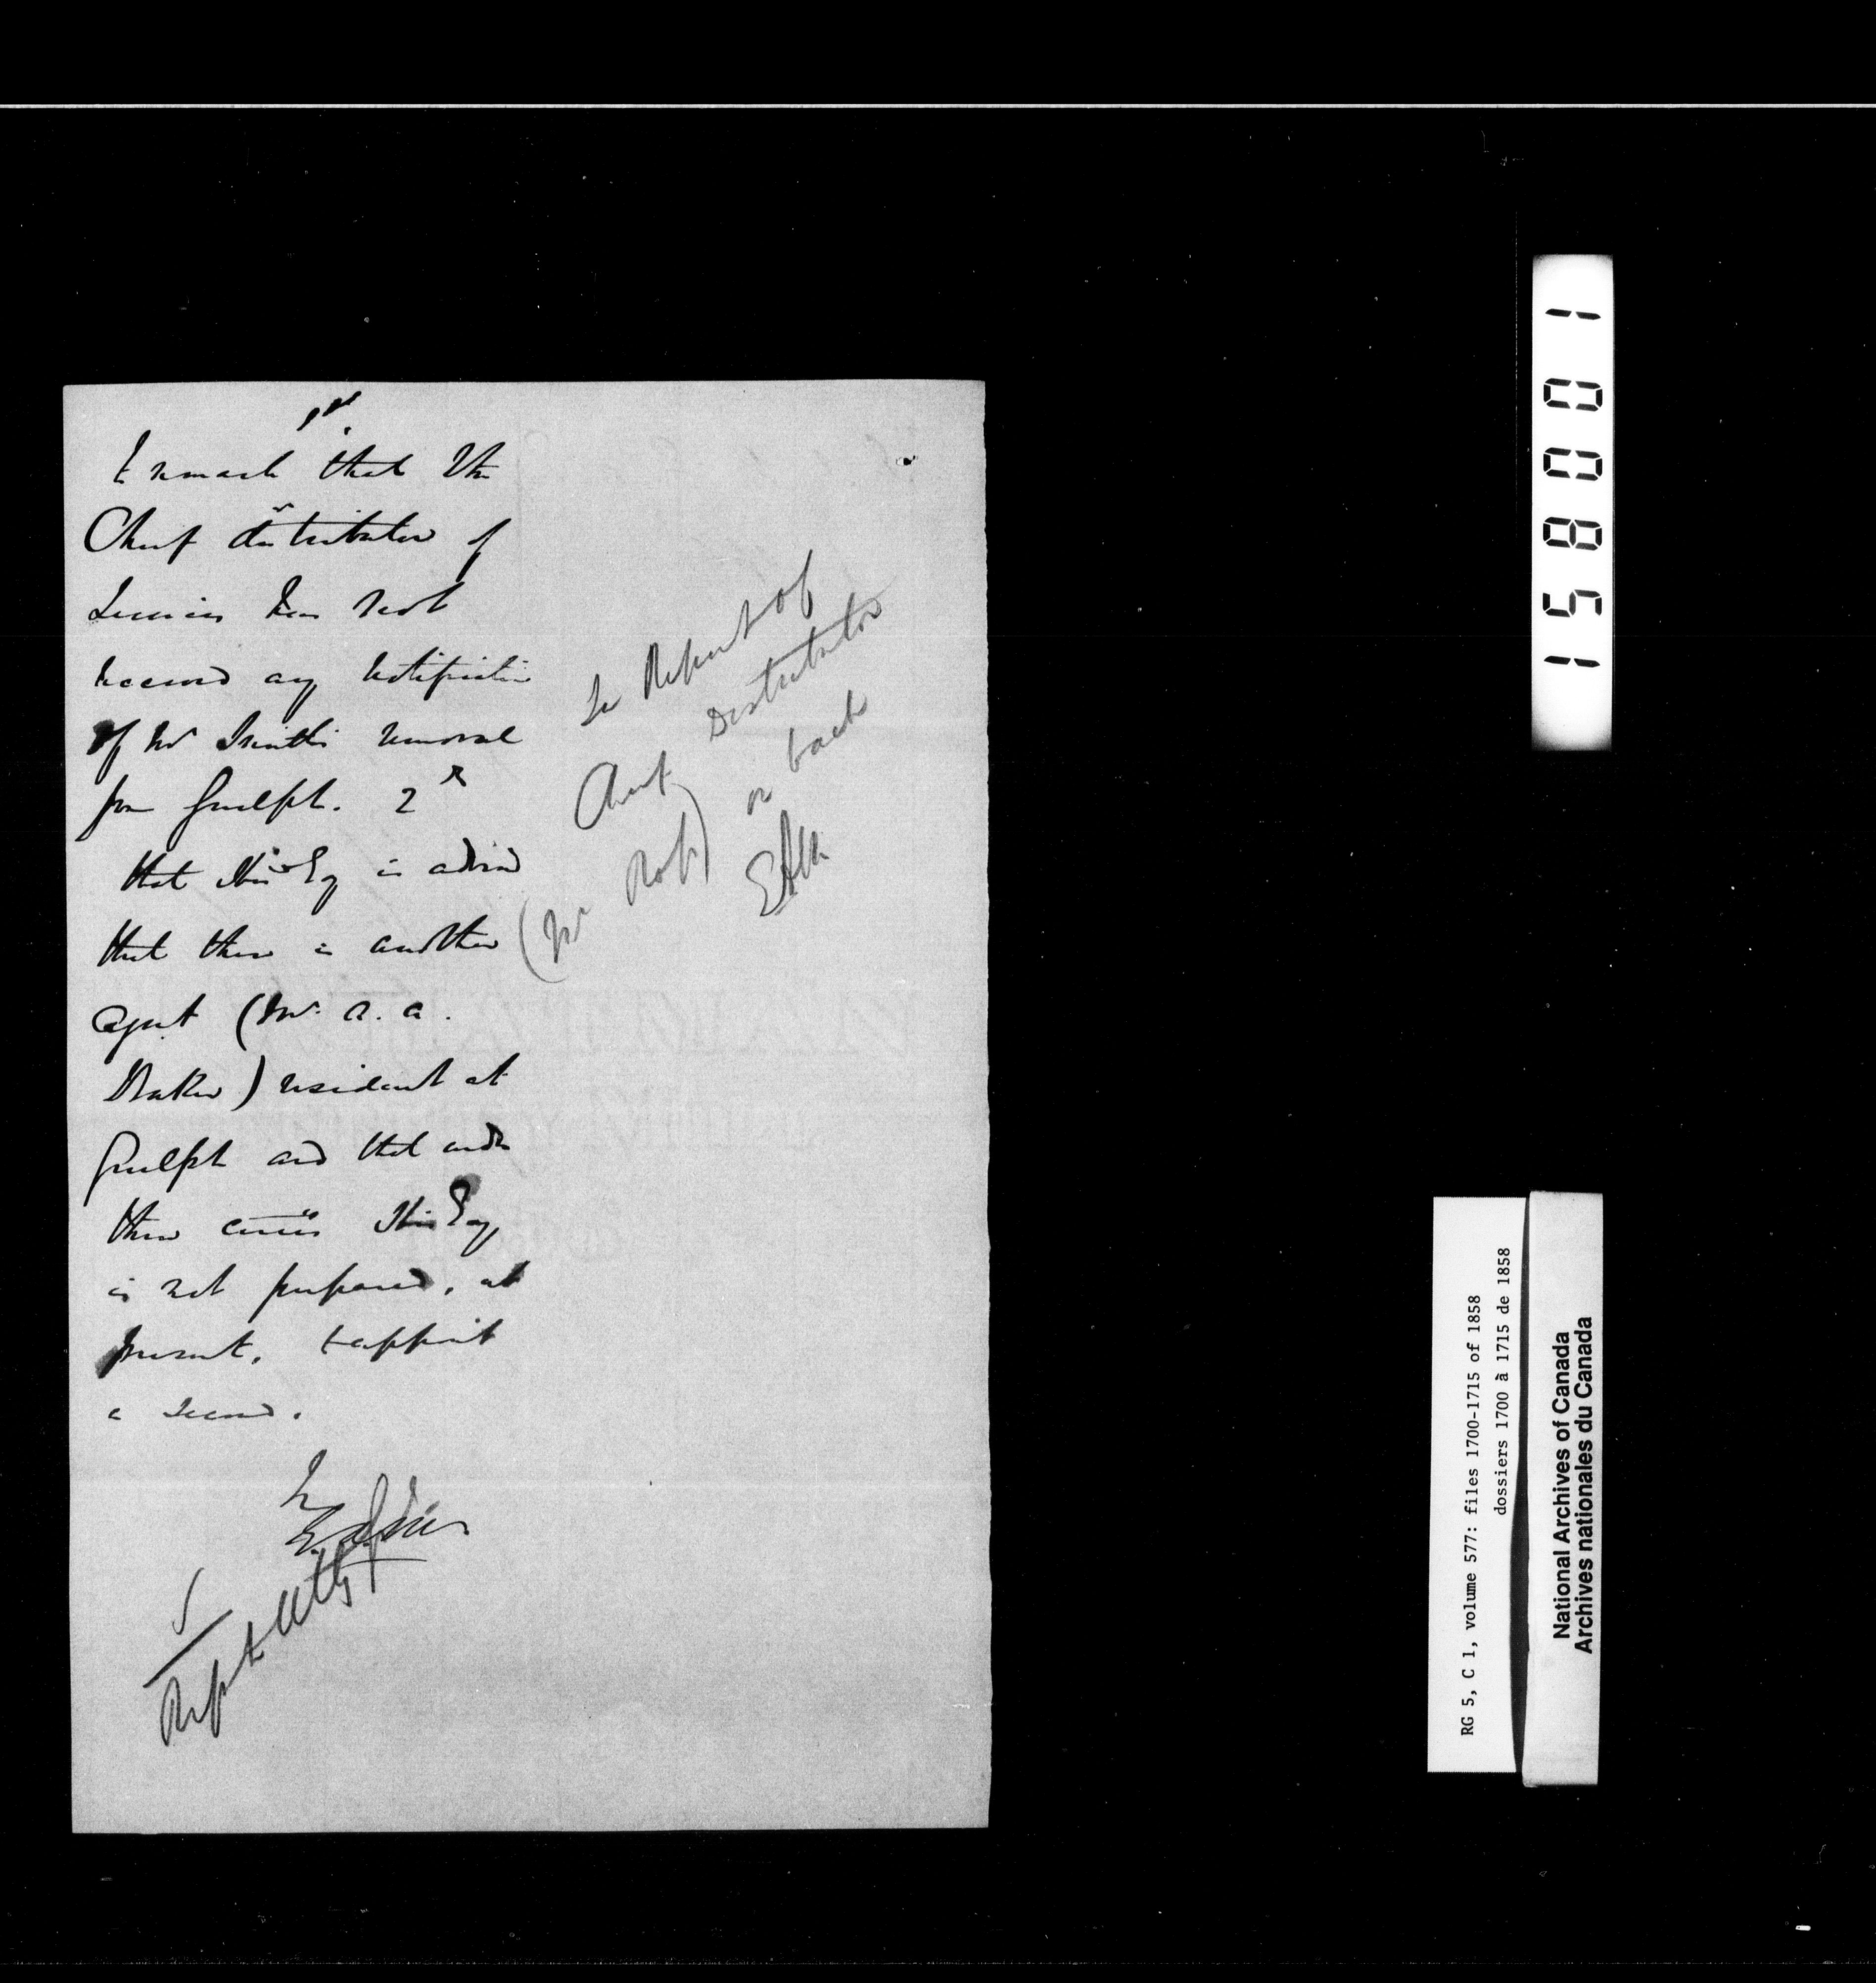 1st
I remark that the
Chief distributor of
Licenses has not
received any notification
of Mr Smith's removal
from Guelph. 2d
that His Exy is advised
that there is another
agent (Mr. A. A.
Baker) resident at
Guelph and that under
these circes His Exy
is not prepared, at
present, to appoint
a second.
Rept
See Report of
Chief Distributor
(Mr Rof)
on back
158001
RG 5, C 1, volume 577: files 1700-1715 of 1858
dossiers 1700 à 1715 de 1858
National Archives of Canada
Archives nationales du Canada